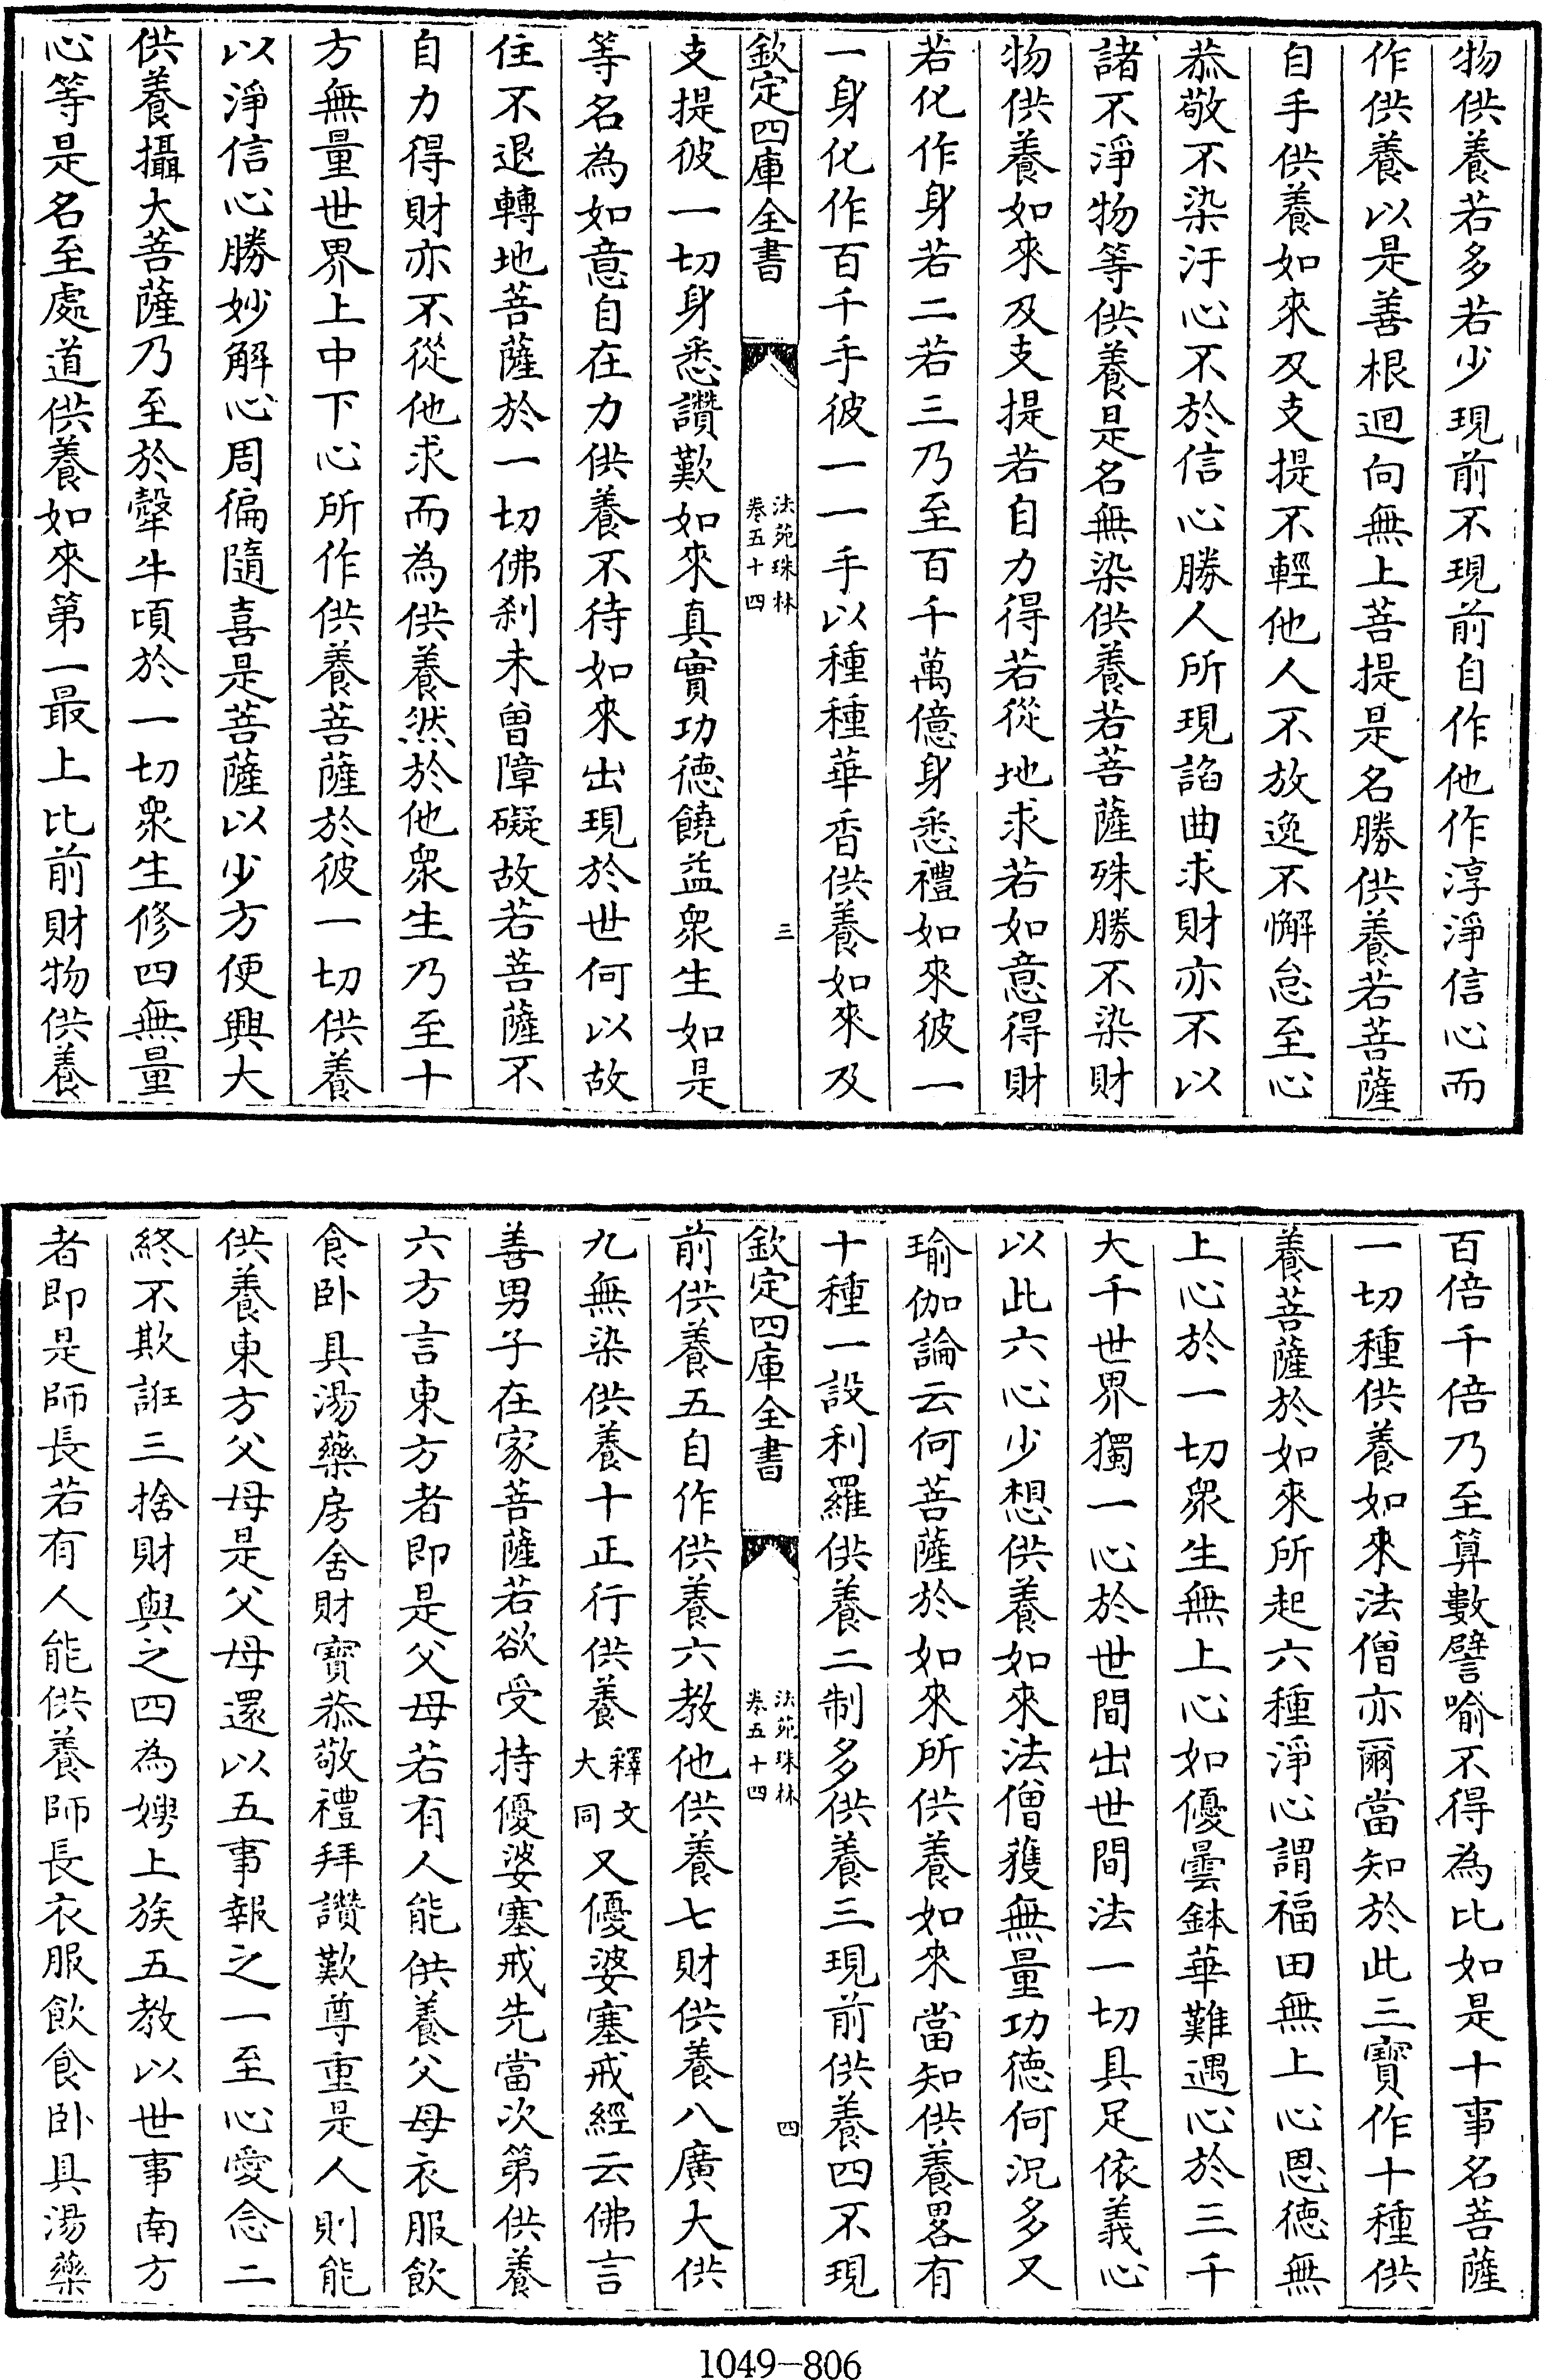 物供養若多若少現前不現前自作他作淳淨信心而
作供養以是善根迴向無上菩提是名勝供養若菩薩
自手供養如來及支提不輕他人不放逸不懈怠至心
恭敬不染汙心不於信心勝人所現諂曲求財亦不以
諸不淨物等供養是名無染供養若菩薩殊勝不染財
物供養如來及支提若自力得若從地求若如意得財
若化作身若二若三乃至百千萬億身悉禮如來彼一
一身化作百千手彼一一手以種種華香供養如來及
欽定四庫全書 法苑珠林 卷五十四 三
支提彼一切身悉讚歎如來真實功德饒益衆生如是
等名為如意自在力供養不待如來出現於世何以故
住不退轉地菩薩於一切佛刹未曾障礙故若菩薩不
自力得財亦不從他求而為供養然於他衆生乃至十
方無量世界上中下心所作供養菩薩於彼一切供養
以淨信心勝妙解心周徧隨喜是菩薩以少方便興大
供養攝大菩薩乃至於犛牛頃於一切衆生修四無量
心等是名至處道供養如來第一最上比前財物供養
百倍千倍乃至算數譬喻不得為比如是十事名菩薩
一切種供養如來法僧亦爾當知於此三寶作十種供
養菩薩於如來所起六種淨心謂福田無上心恩德無
上心於一切衆生無上心如優曇鉢華難遇心於三千
大千世界獨一心於世間出世間法一切具足依義心
以此六心少想供養如來法僧獲無量功德何況多又
瑜伽論云何菩薩於如來所供養如來當知供養畧有
十種一設利羅供養二制多供養三現前供養四不現
欽定四庫全書 法苑珠林 卷五十四 四
前供養五自作供養六教他供養七財供養八廣大供
九無染供養十正行供養釋文大同又優婆塞戒經云佛言
善男子在家菩薩若欲受持優婆塞戒先當次第供養
六方言東方者即是父母若有人能供養父母衣服飲
食卧具湯藥房舍財寶恭敬禮拜讚歎尊重是人則能
供養東方父母是父母還以五事報之一至心愛念二
終不欺誑三捨財與之四為娉上族五教以世事南方
者即是師長若有人能供養師長衣服飲食卧具湯藥
1049-806